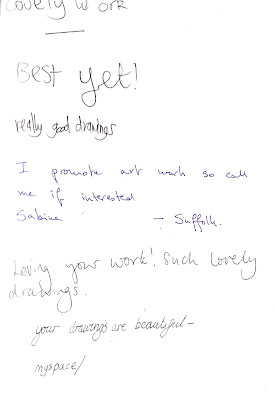 Lovely work
Best yet!
really good drawings
I promote art work so call
me if interested
Sabine - Suffolk.
Loving your work! Such lovely
drawings.
your drawings are beautiful-
myspace/